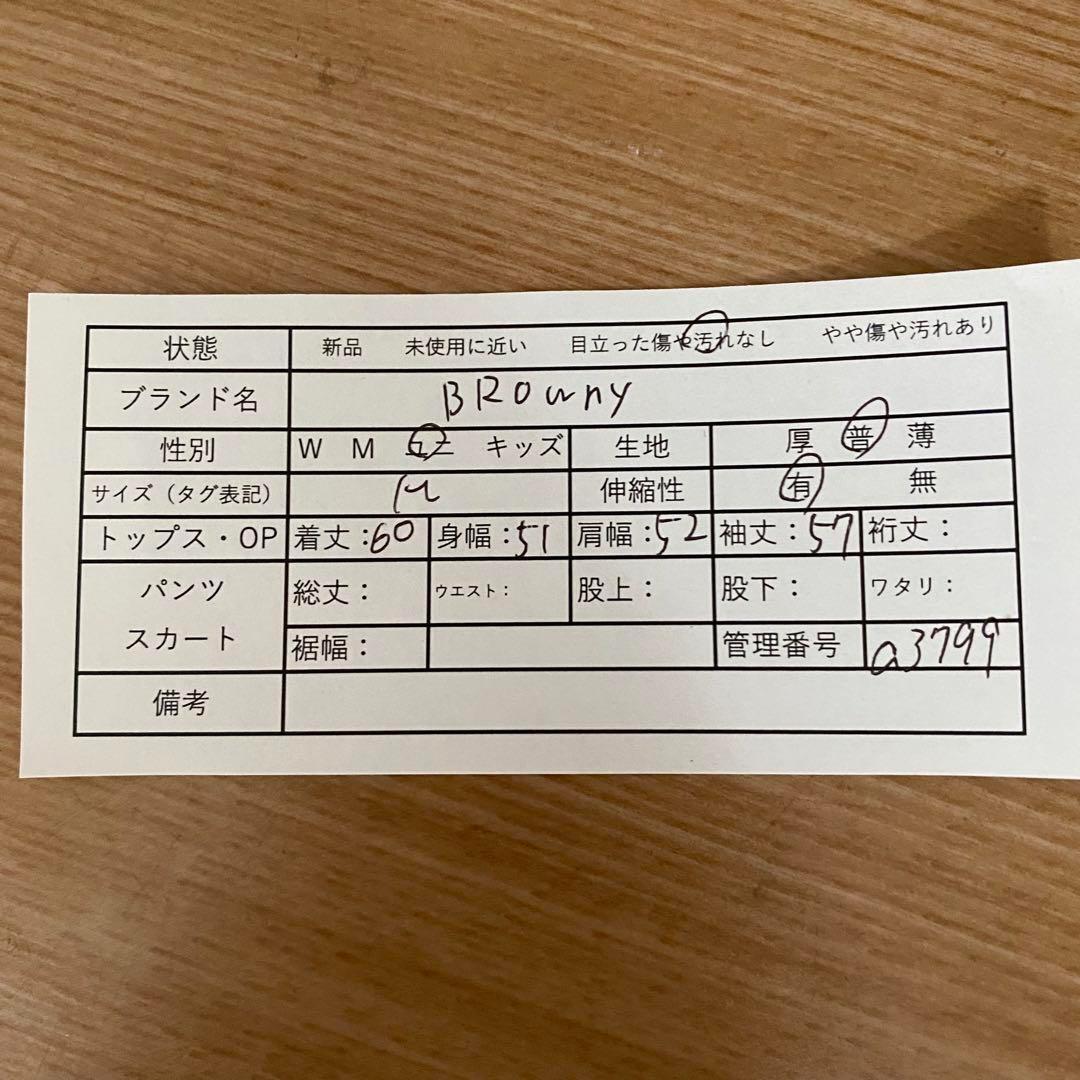 状態 新品 未使用に近い 目立った傷や汚れなし やや傷や汚れあり
ブランド名 BROwny
性別 W M ユニ キッズ 生地 厚 普 薄
サイズ（タグ表記） M 伸縮性 有 無
トップス・OP 着丈：60 身幅：51 肩幅：52 袖丈：57 裄丈：
パンツ 総丈： ウエスト： 股上： 股下： ワタリ：
スカート 裾幅： 管理番号 a3799
備考